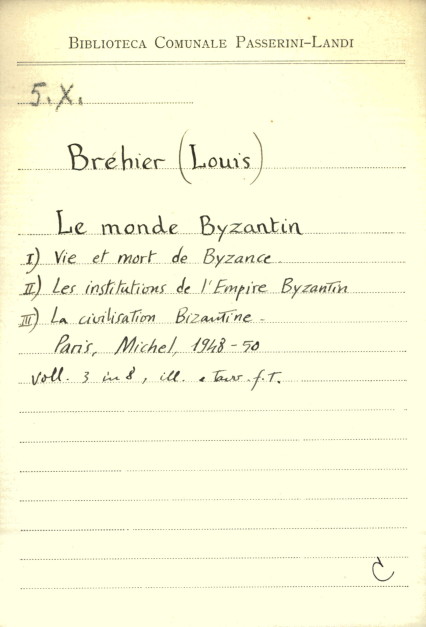 BIBLIOTECA COMUNALE PASSERINI-LANDI
5.X.
Bréhier (Louis)
Le monde Byzantin
I) Vie et mort de Byzance.
II) Les institutions de l'Empire Byzantin
III) La civilisation Bizantine.
Paris, Michel, 1948-50
voll. 3 in 8, ill. e tavv. f.t.
C